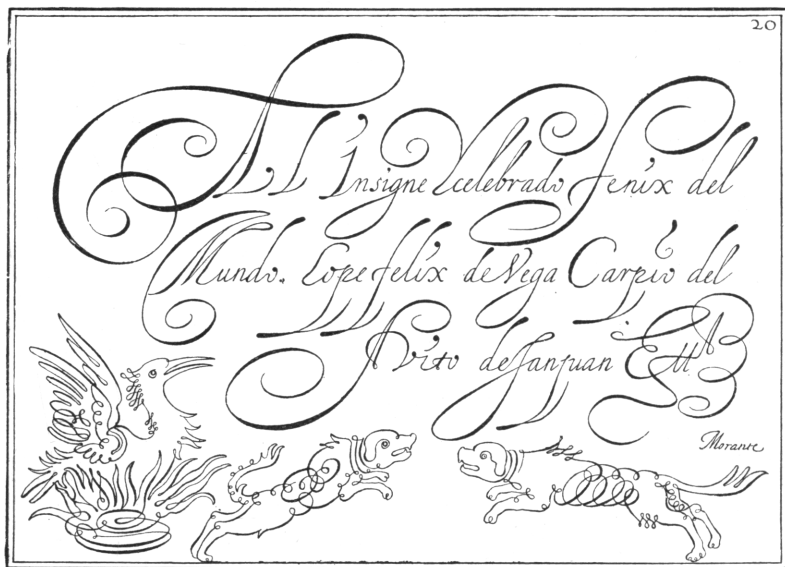 20
Al Insigne Ycelebrado fenix del
Mundo. Lope felix de Vega Carpio del
Avito de sanjuan Ett
Morante